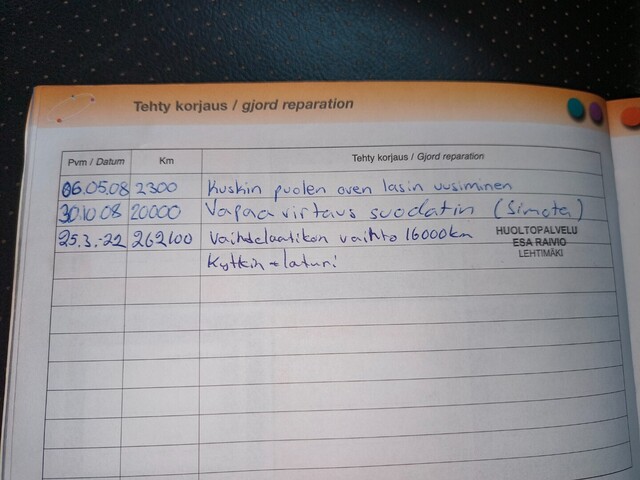 Tehty korjaus / gjord reparation
Pvm / Datum Km Tehty korjaus / Gjord reparation
06.05.08 2300 Kuskin puolen oven lasin uusiminen
30.10 08 20000 Vapaa virtaus suodatin (Simota)
25.3.-22 262100 Vaihdelaatikon vaihto 16000km
HUOLTOPALVELU
ESA RAIVIO
LEHTIMÄKI
Kytkin + laturi